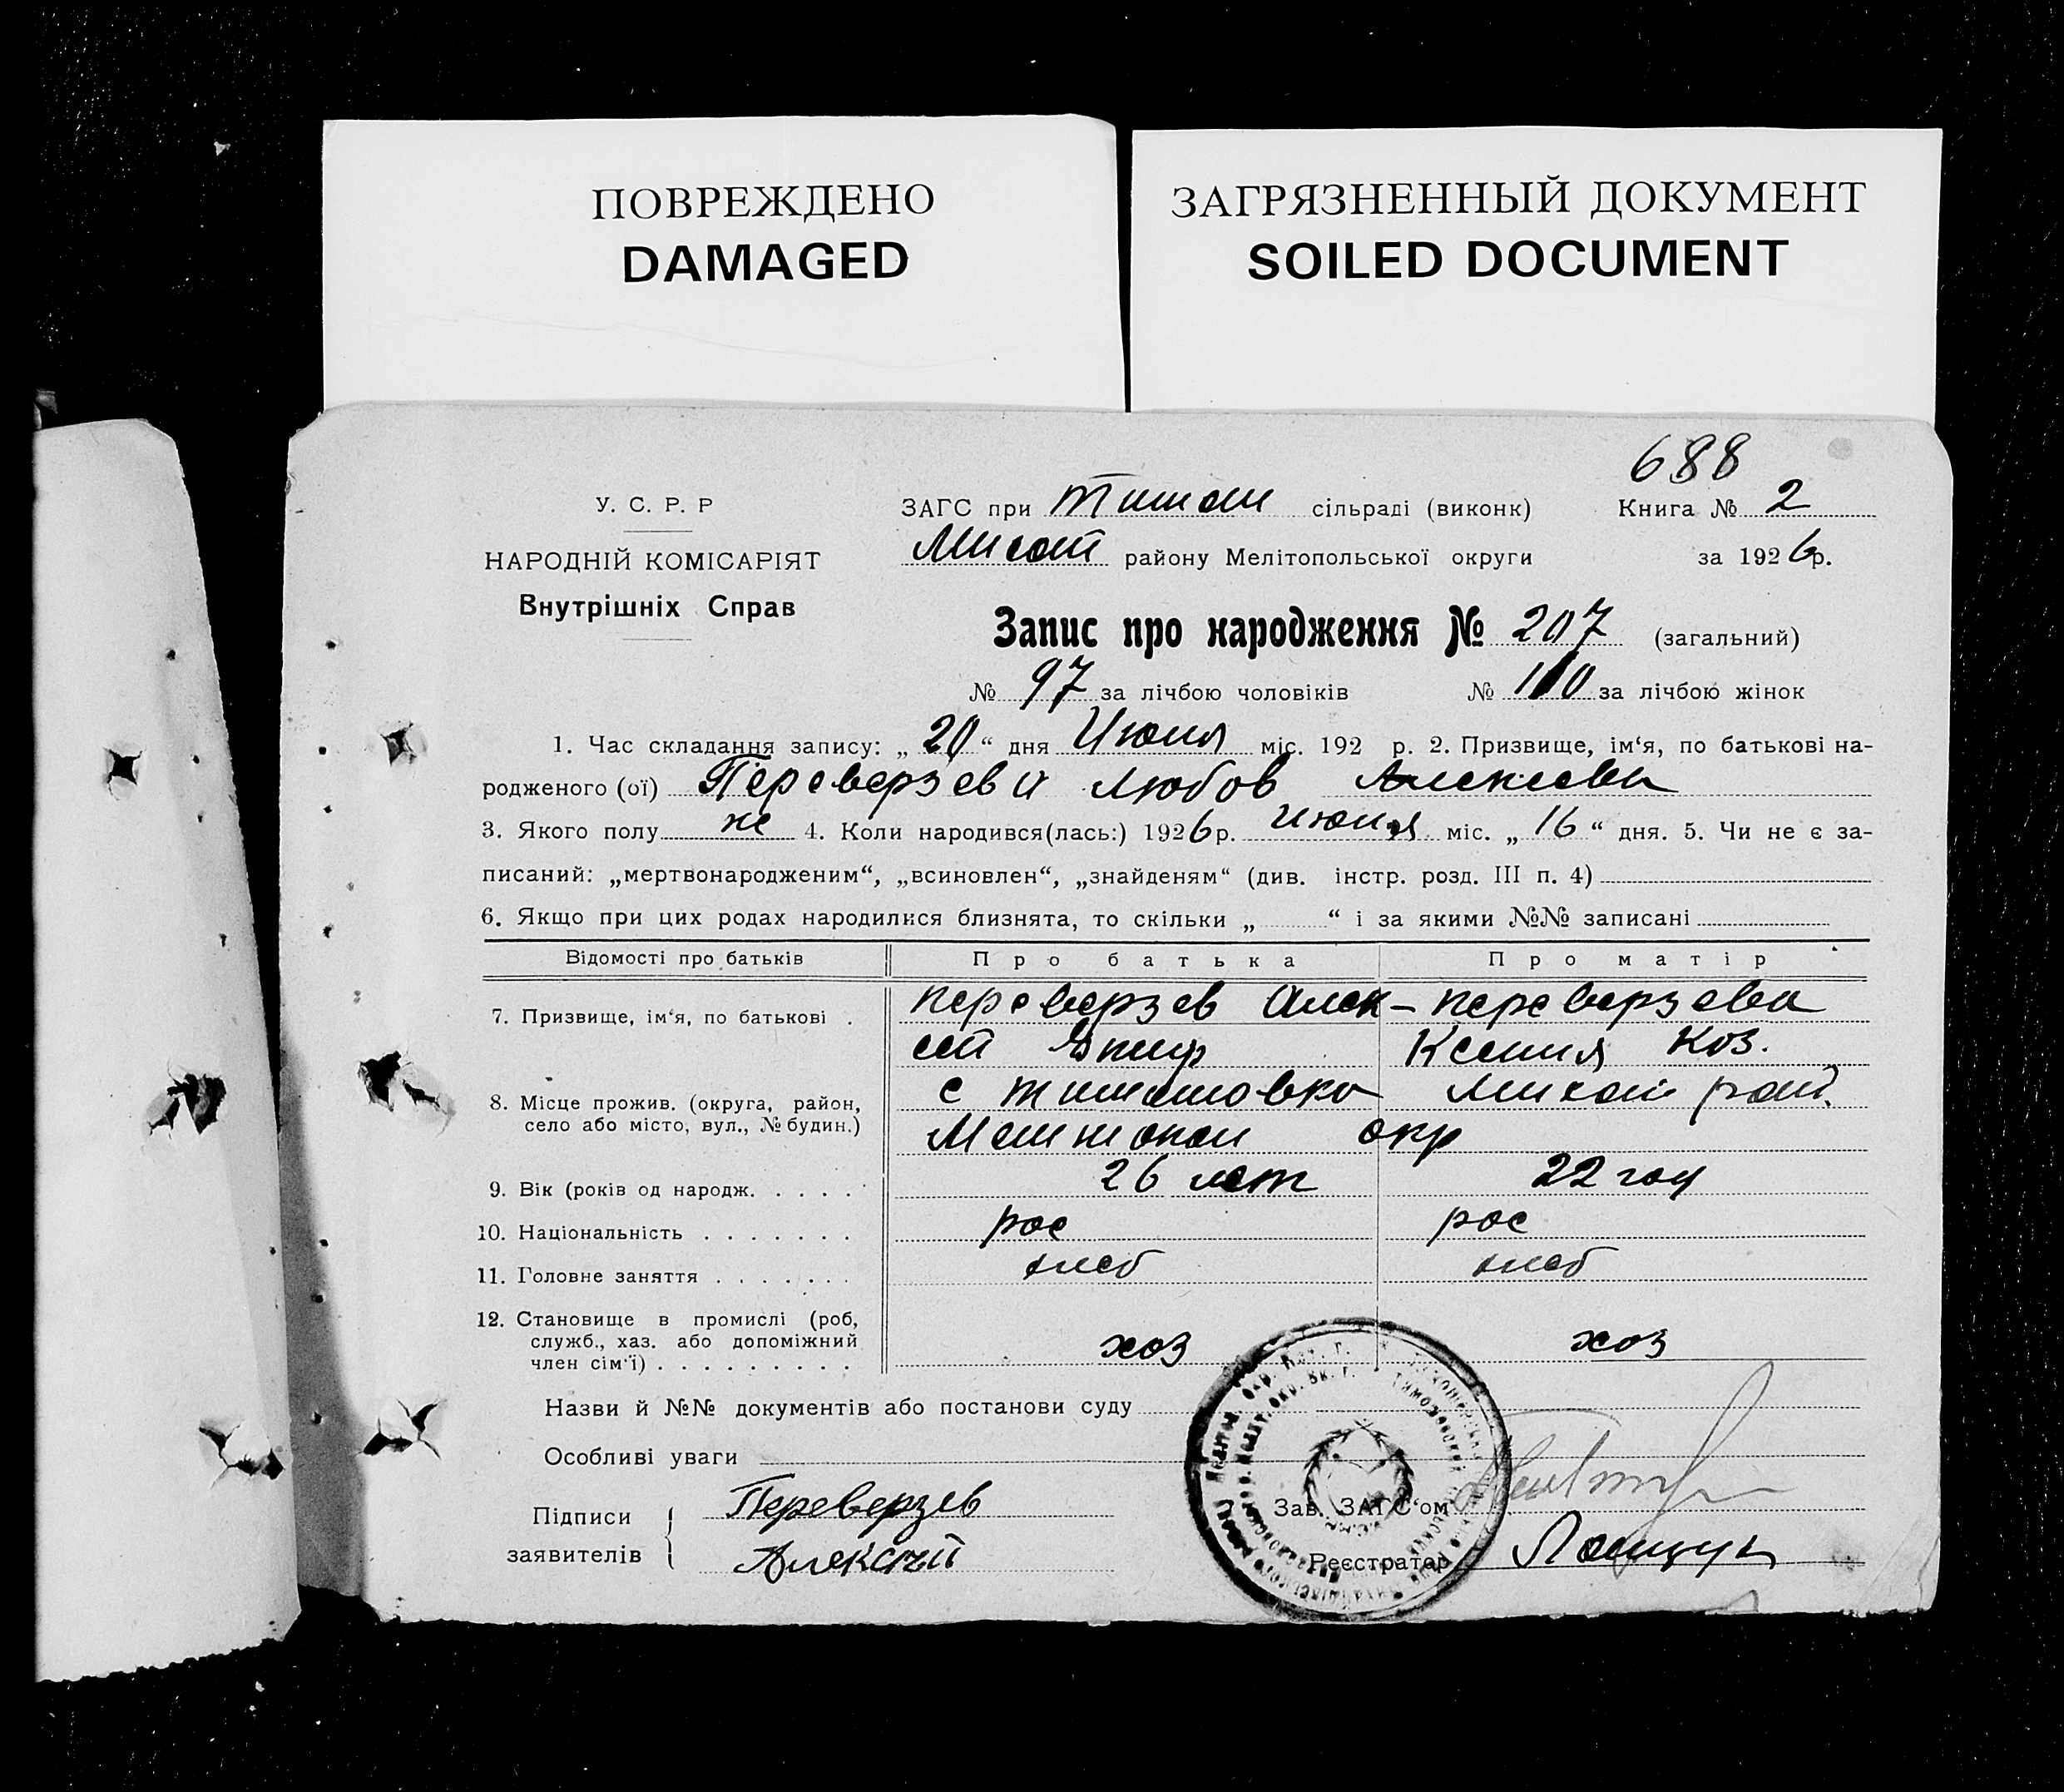 ПОВРЕЖДЕНО
DAMAGED
ЗАГРЯЗНЕННЫЙ ДОКУМЕНТ
SOILED DOCUMENT
688
У. С. Р. Р
НАРОДНІЙ КОМІСАРІЯТ
Внутрішніх Справ
ЗАГС при Тимош сільраді (виконк) Книга № 2
Михай району Мелітопольської округи за 1926р.
Запис про народження № 207 (загальний)
№ 97 за лічбою чоловіків № 110 за лічбою жінок
1. Час складання запису: „ 20 “ дня Июня міс. 192 р. 2. Призвище, ім‘я, по батькові на-
родженого (ої) Переверзева Любов Алексеева
3. Якого полу же 4. Коли народився(лась:) 1926р. Июня міс. „ 16 “ дня. 5. Чи не є за-
писаний: „мертвонародженим“, „всиновлен“, „знайденям“ (див. інстр. розд. III п. 4)
6. Якщо при цих родах народилися близнята, то скільки „ “ і за якими №№ записані
Відомості про батьків Про батька Про матір
7. Призвище, ім‘я, по батькові . Переверзев Алек- Переверзева
сей Ксения Коз.
8. Місце прожив. (округа, район, село або місто, вул., № будин.) с Тимошовка Михай рай.
окр
9. Вік (років од народж. . . . . 26 лет 22 год
10. Національність . . . . . . . рос рос
11. Головне заняття . . . . . . . хлеб хлеб
12. Становище в промислі (роб, служб., хаз. або допоміжний член сім‘ї) . . . . . . . . . хоз хоз
Назви й №№ документів або постанови суду
Особливі уваги
Підписи заявителів Переверзев
Алексей
Зав. ЗАГС‘ом
Реєстратор